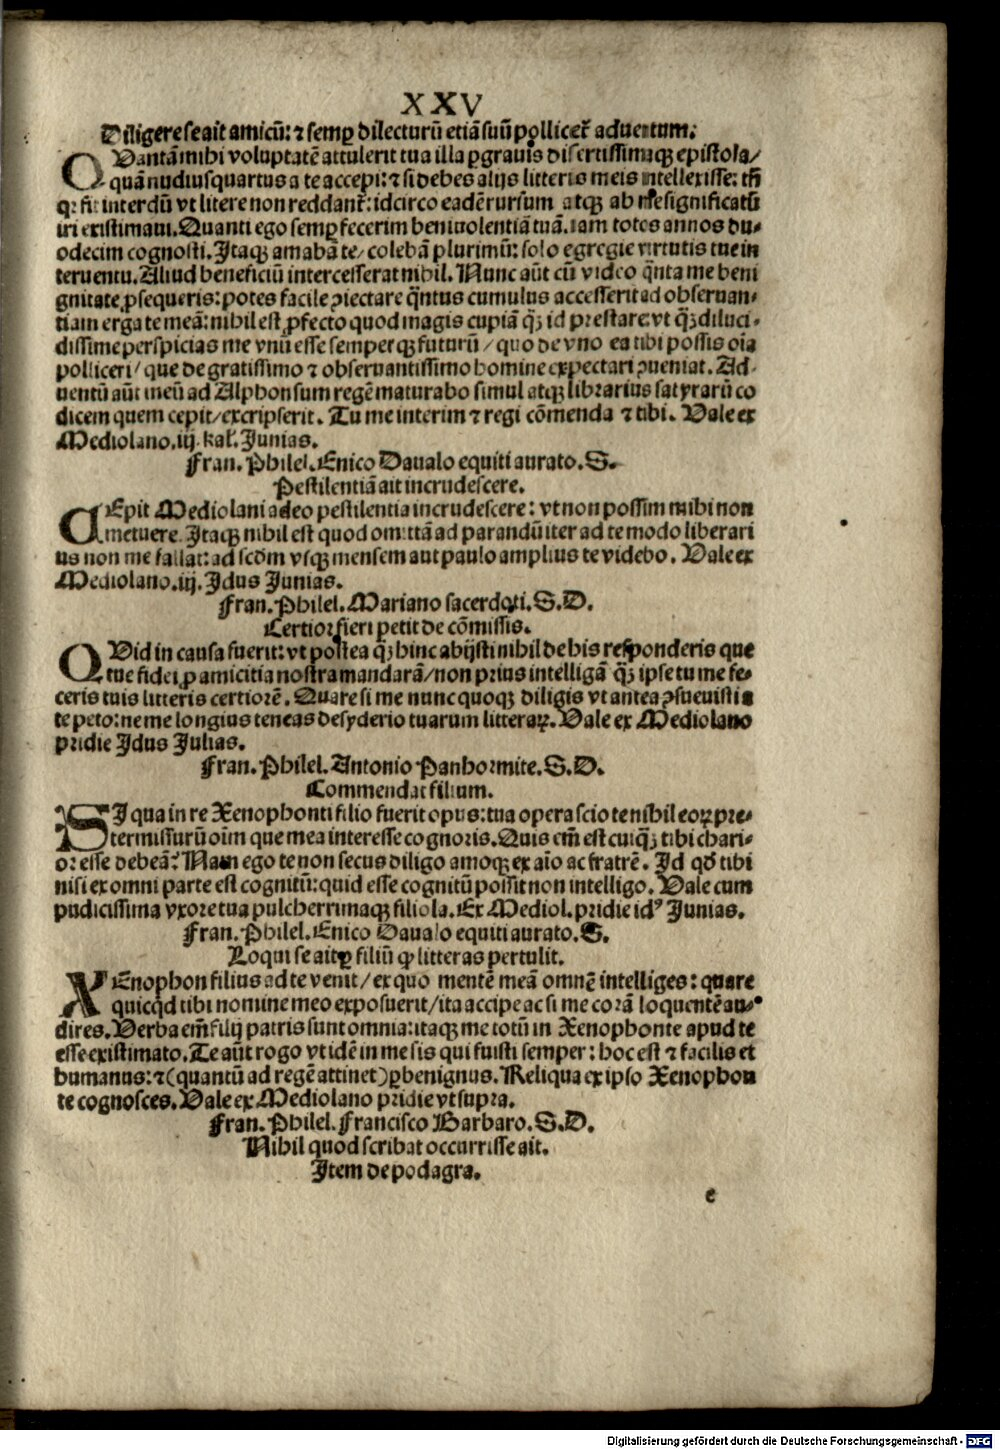 XXV
Diligere se ait amicū: ⁊ semꝑ dilecturū etiā suū pollicet᷑ aduentum.
QVantā mihi voluptatē attulerit tua illa ꝑgrauis disertissimaqꝫ epistola/
quā nudiusquartus a te accepi: ⁊ si debes alijs litteris meis intellexisse: tn̄
interdū vt litere non reddant᷑: idcirco eadē rursum atqꝫ ab
iri existimaui. Quanti ego semꝑ fecerim beniuolentiā tuā. iam totos annos du⸗
odecim cognosti. Itaqꝫ amabā te/ colebā plurimū: solo egregie virtutis tue in
teruentu. Aliud beneficiū intercesserat nihil. Nunc aūt cū video q̄nta me beni
gnitate ꝓsequeris: potes facile ꝯiectare q̄ntus cumulus accesserit ad obseruan⸗
tiam erga te meā: nihil est ꝓfecto quod magis cupiā qꝫ̄ id prestare: vt qꝫ̄ diluci⸗
dissime perspicias me vnū esse semperqꝫ futurū/ quo de vno ea tibi possis oīa
polliceri/ que de gratissimo ⁊ obseruantissimo homine expectari ꝯueniat. Ad⸗
uentū aūt meū ad Alphonsum regē maturabo simul atqꝫ librarius satyrarū co
dicem quem cepit/ excripserit. Tu me interim ⁊ regi cōmenda ⁊ tibi. Vale ex
Mediolano. iij. kal'. Junias.
Fran. Philel. Enico Daualo equiti aurato. S.
Pestilentiā ait incrudescere.
CEpit Mediolani adeo pestilentia incrudescere: vt non possim mihi non
metuere. Itaqꝫ nihil est quod omittā ad parandū iter ad te modo liberari
us non me fallat: ad scd̄m vsqꝫ mensem aut paulo amplius te videbo. Vale ex
Mediolano. iij. Idus Junias.
Fran. Philel. Mariano sacerdoti. S. D.
Certior fieri petit de cōmissis.
QVid in causa fuerit: vt postea qꝫ̄ hinc abijsti nihil de his responderis que
tue fidei ꝓ amicitia nostra mandarā/ non prius intelligā qꝫ̄ ipse tu me fe⸗
ceris tuis litteris certiorē. Quare si me nunc quoqꝫ diligis vt antea ꝯsueuisti
te peto: ne me longius teneas desyderio tuarum litteraꝝ. Vale ex Mediolano
pridie Idus Julias.
Fran. Philel. Antonio Panhormite. S. D.
Commendat filium.
SI qua in re Xenophonti filio fuerit opus: tua opera scio te nihil eoꝝ pre⸗
termissurū oīm que mea interesse cognoris. Quis em̄ est cuiqꝫ̄ tibi chari⸗
or esse debeā? Nam ego te non secus diligo amoqꝫ ex aīo ac fratrē. Id qd̄ tibi
nisi ex omni parte est cognitū: quid esse cognitū possit non intelligo. Vale cum
pudicissima vxore tua pulcherrimaqꝫ filiola. Ex Mediol. pridie idꝰ Junias.
Fran. Philel. Enico Daualo equiti aurato. S.
Loqui se ait ꝑ filiū ꝙ litteras pertulit.
XEnophon filius ad te venit/ ex quo mentē meā omnē intelliges: quare
quicqd̄ tibi nomine meo exposuerit/ ita accipe ac si me corā loquentē au⸗
dires. Verba em̄ filij patris sunt omnia: itaqꝫ me totū in Xenophonte apud te
esse existimato. Te aūt rogo vt idē in me sis qui fuisti semper: hoc est ⁊ facilis et
humanus: ⁊ (quantū ad regē attinet) ꝑbenignus. Reliqua ex ipso Xenophon
te cognosces. Vale ex Mediolano pridie vt supra.
Fran. Philel. Francisco Barbaro. S. D.
Nihil quod scribat occurrisse ait.
Item de podagra.
e
Digitalisierung gefördert durch die Deutsche Forschungsgemeinschaft - DFG